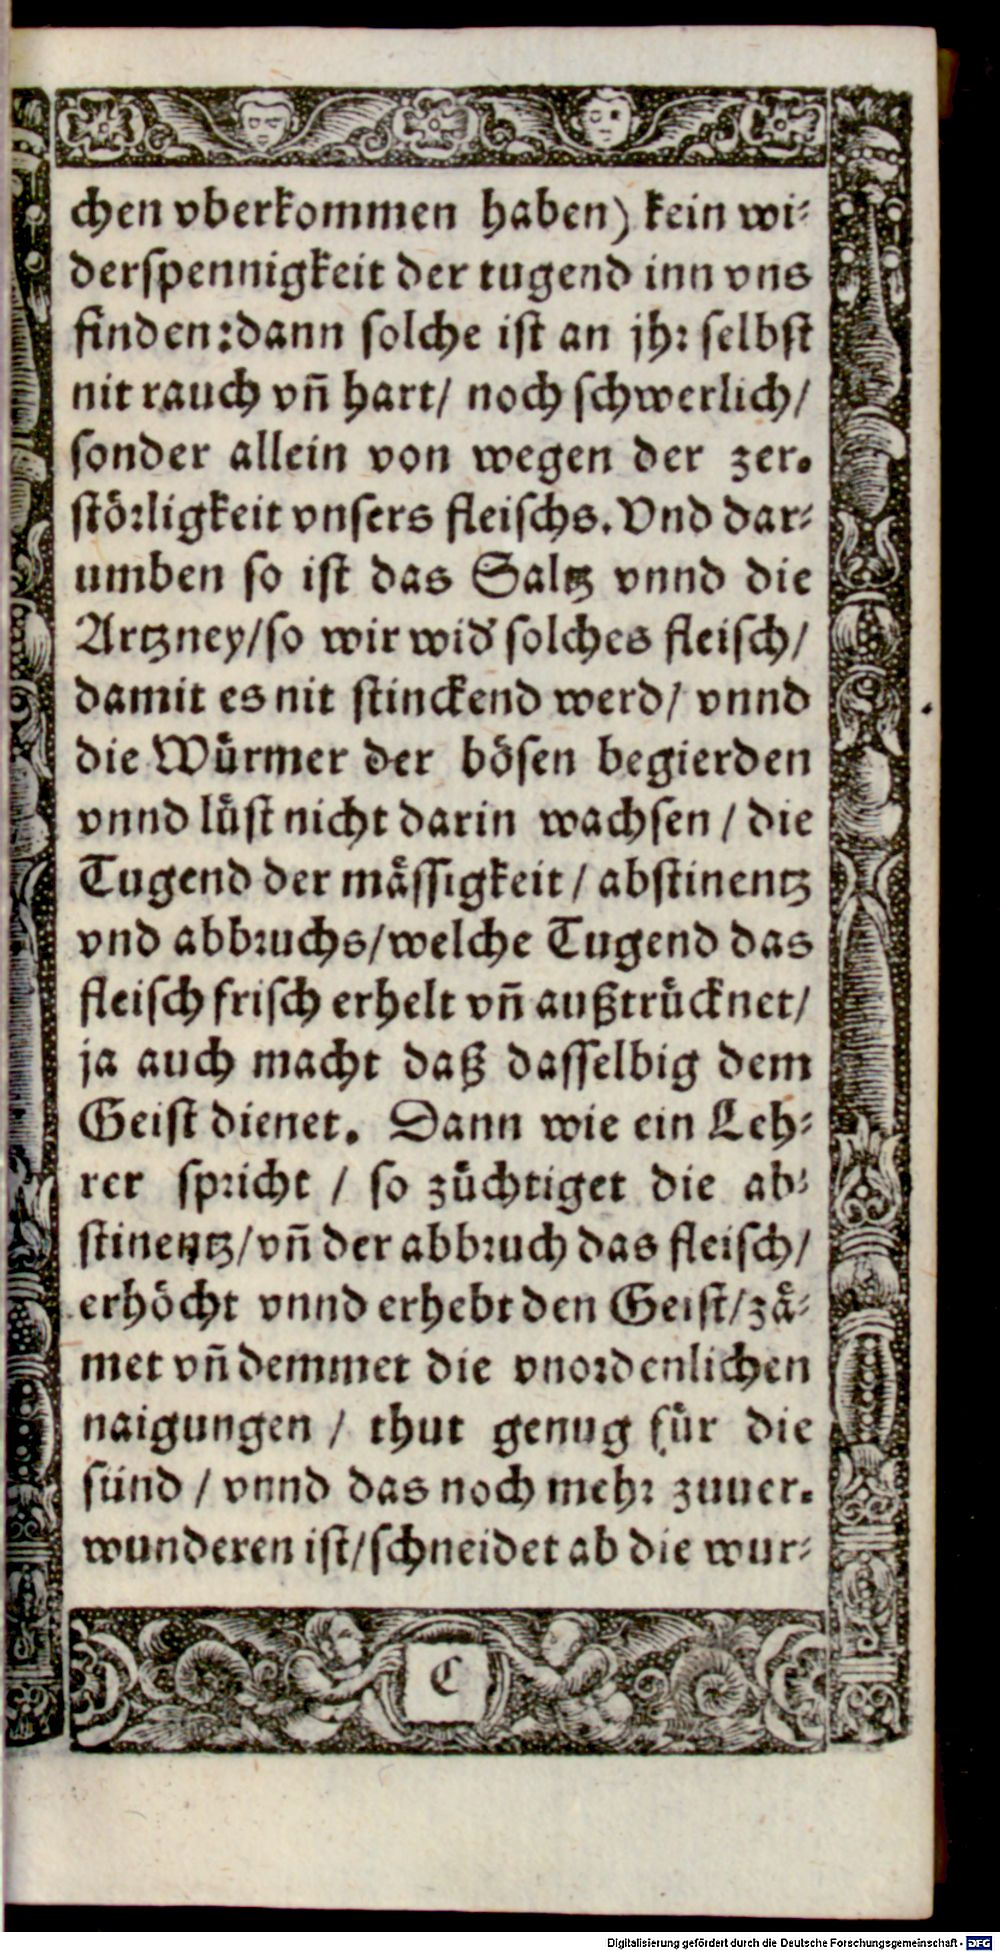 chen vberkommen haben) kein wi⸗
derspennigkeit der tugend inn vns
finden: dann solche ist an jhr selbst
nit rauch vñ hart/ noch schwerlich/
sonder allein von wegen der zer.
störligkeit vnsers fleischs. Vnd dar⸗
umben so ist das Saltz vnnd die
Artzney/so wir wid' solches fleisch/
damit es nit stinckend werd/ vnnd
die Wuͤrmer der boͤsen begierden
vnnd luͤst nicht darin wachsen / die
Tugend der maͤssigkeit / abstinentz
vnd abbruchs/welche Tugend das
fleisch frisch erhelt vñ außtruͤcknet/
ja auch macht daß dasselbig dem
Geist dienet. Dann wie ein Leh⸗
rer spricht / so zuͤchtiget die ab⸗
stinentz/vñ der abbruch das fleisch/
erhoͤcht vnnd erhebt den Geist/zaͤ⸗
met vñ demmet die vnordenlichen
naigungen / thut genug fuͤr die
suͤnd / vnnd das noch mehr zuuer.
wunderen ist/schneidet ab die wur⸗
C
Digitalisierung gefördert durch die Deutsche Forschungsgemeinschaft - DFG